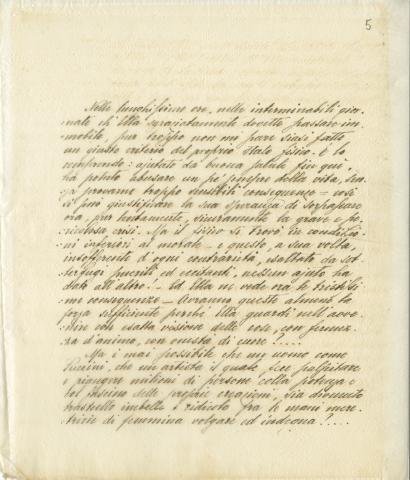 5
Nelle lunghissime ore, nelle interminabili gior-
nate ch'Ella sgraziatamente dovette passare im-
mobile, pur troppo non mi pare siasi fatto
un giusto criterio del proprio stato fisico. E lo
comprendo: aiutato da buona salute fin qui,
ha potuto abusare un po' sempre della vita, sen-
za provarne troppo sensibili conseguenze - così
si può giustificare la sua speranza di sorpassare
ora, pur lentamente, sicuramente la grave e pe-
ricolosa crisi. Ma il fisico si trovò in condizio-
ni inferiori al morale - e questo, a sua volta,
insofferente d'ogni contrarietà, esaltato da sot-
terfugi puerili ed eccitanti, nessun aiuto ha
dato all'altro! - Ed Ella ne vede ora le tristissi-
me conseguenze - Avranno queste almeno la
forza sufficiente perchè Ella guardi nell'avve-
nire con esatta visione delle cose, con fermez-
za d'animo, con onestà di cuore?....
Ma è mai possibile che un uomo come
Puccini, che un artista il quale fece palpitare
e piangere milioni di persone colla potenza e
col fascino delle proprie creazioni, sia divenuto
trastullo imbelle e ridicolo fra le mani mere-
tricie di femmina volgare ed indegna?....